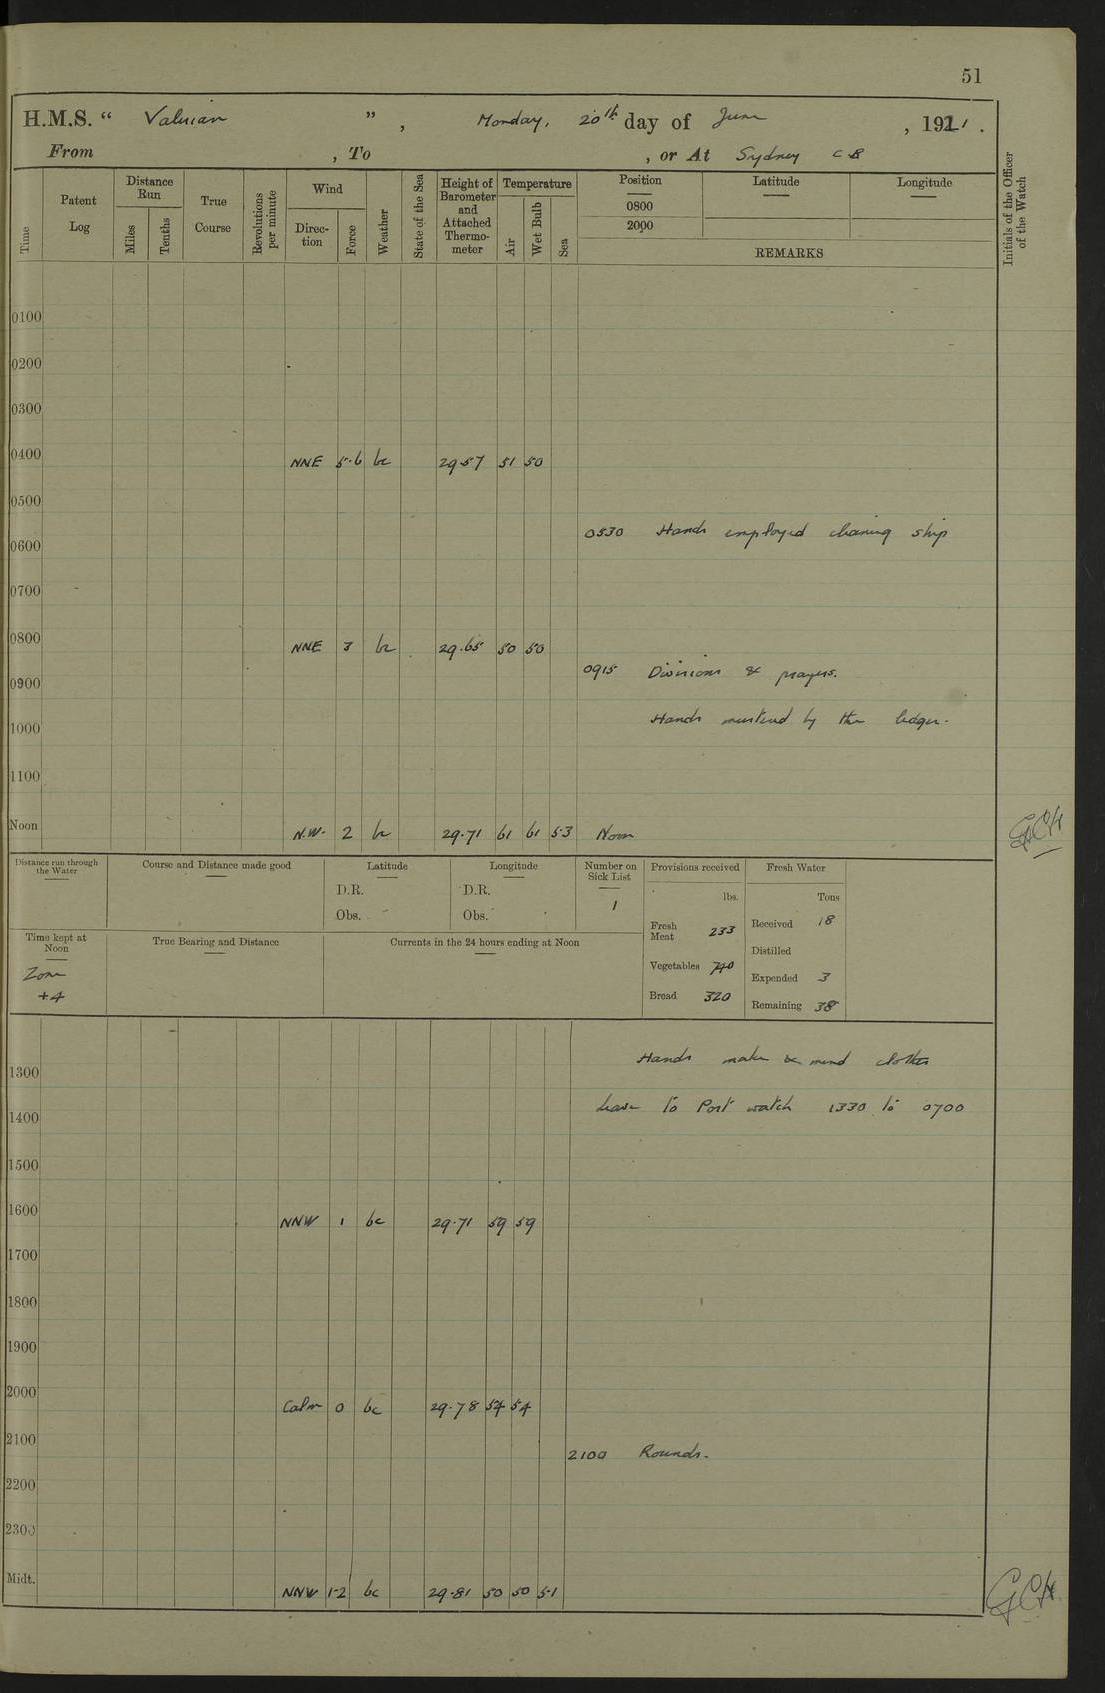 51
H.M.S. “ Valerian ” , Monday, 20th day of June , 1921 .
From , To , or At Sydney C B
Time
Patent Log
Distance Run
Miles
Tenths
True Course
Revolutions per minute
Wind
Direc- tion
Force
Weather
State of the Sea
Height of Barometer and Attached Thermo- meter
Temperature
Air
Wet Bulb
Sea
Position Latitude Longitude
0800
2000
REMARKS
Initials of the Officer of the Watch
0100
0200
0300
0400 NNE 5-6 bc 29.57 51 50
0500
0530 Hands employed cleaning ship
0600
0700
0800 NNE 3 bc 29.65 50 50
0915 Divisions & prayers.
0900
Hands mustered by the ledger.
1000
1100
Noon N.W. 2 bc 29.71 61 61 53 Noon
GCH
Distance run through the Water
Course and Distance made good
Latitude
D.R.
Obs.
Longitude
D.R.
Obs.
Number on Sick List
1
Provisions received
lbs.
Fresh Meat 233
Vegetables 740
Bread 320
Fresh Water
Tons
Received 18
Distilled
Expended 3
Remaining 38
Time kept at Noon
Zone
+4
True Bearing and Distance
Currents in the 24 hours ending at Noon
Hands make & mend clothes
1300
Leave to Port watch 1330 to 0700
1400
1500
1600 NNW 1 bc 29.71 59 59
1700
1800
1900
2000 Calm 0 bc 29.78 54 54
2100
2100 Rounds.
2200
2300
Midt. NNW 1-2 bc 29.81 50 50 51
GCH